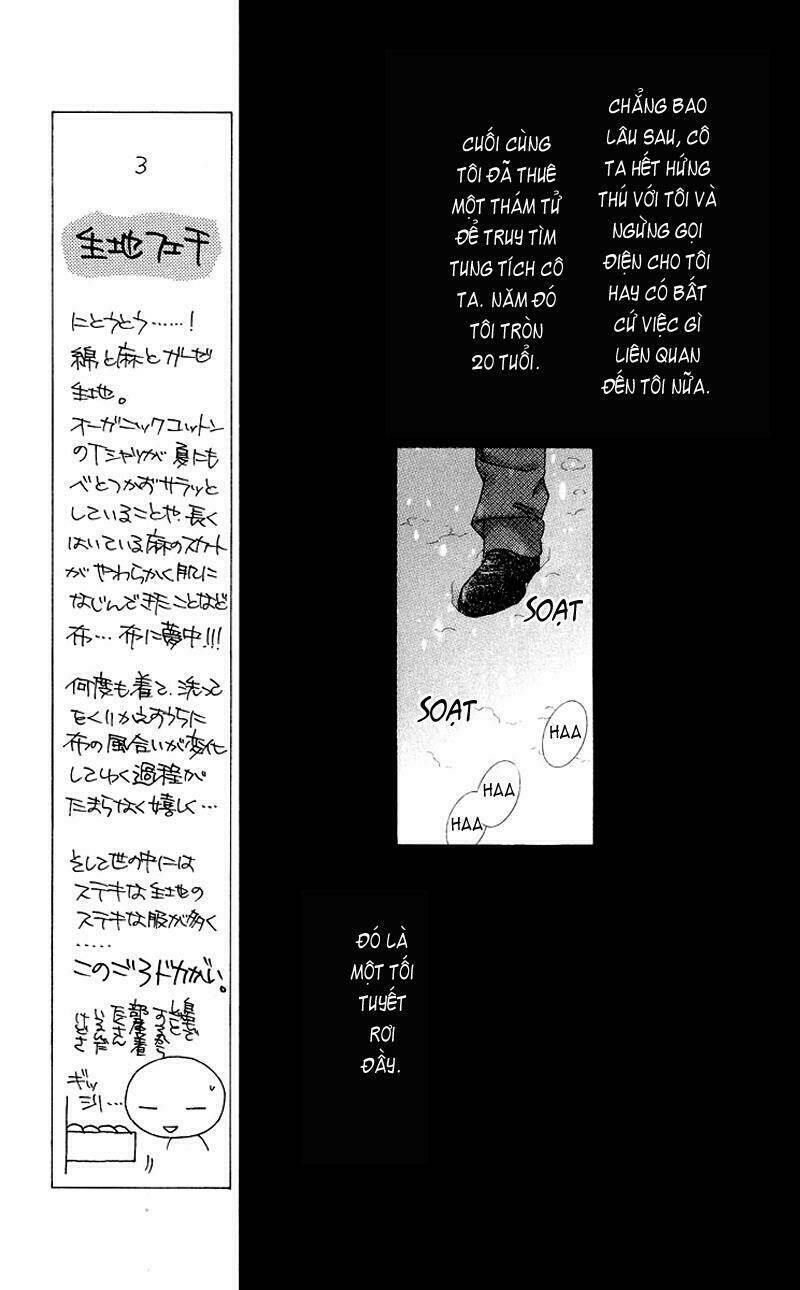 CHẲNG BAO
LÂU SAU, CÔ
TA HẾT HỨNG
THÚ VỚI TÔI VÀ
NGỪNG GỌI
ĐIỆN CHO TÔI
HAY CÓ BẤT
CỨ VIỆC GÌ
LIÊN QUAN
ĐẾN TÔI NỮA.
CUỐI CÙNG
TÔI ĐÃ THUÊ
MỘT THÁM TỬ
ĐỂ TRUY TÌM
TUNG TÍCH CÔ
TA. NĂM ĐÓ
TÔI TRÒN
20 TUỔI.
SOẠT
SOẠT
HAA
HAA
HAA
ĐÓ LÀ
MỘT TỐI
TUYẾT
RƠI
ĐẦY.
3
生地フェチ
にとうとう……!
綿と麻とガーゼ
生地。
オーガニックコットン
のTシャツが夏にも
べとつかずサラッと
していることや、長く
はいている麻のスカート
がやわらかく肌に
なじんできたことなど
布…布に夢中!!!
何度も着て、洗って
をくりかえすうちに
布の風合いが変化
してゆく過程が
たまらなく嬉しく…
そして世の中には
ステキな生地の
ステキな服が多く
……
このごろドカがい。
自宅で
しごと
するから
部屋着
たくさん
いるんだ
けどさ
ギッ
シリ…